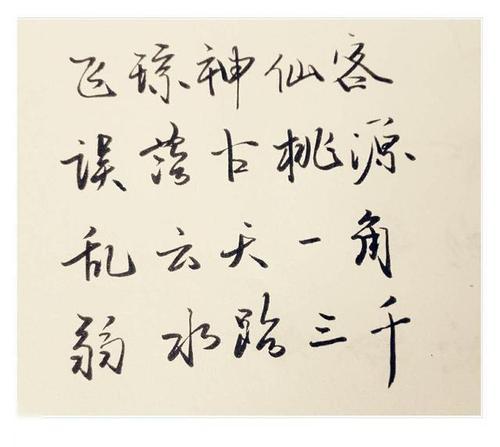 飞琼神仙客
误落古桃源
乱云天一角
弱水路三千